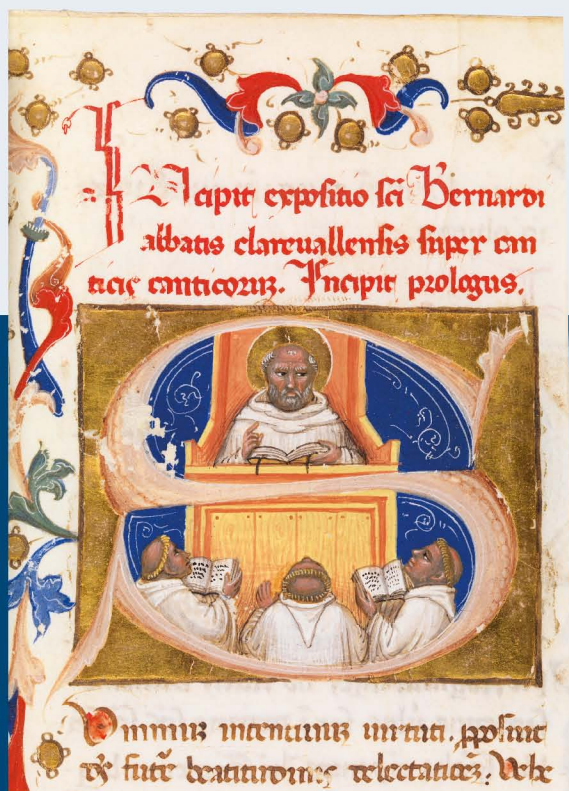 Incipit expositio sci Bernardi
abbatis clareuallensis super can
ticis canticoruz. Incipit prologus.
Ummuz incentiuuz uirtuti. pposuit
ds̄ futuᵉ beatitudinis delectatioēz. Vehe